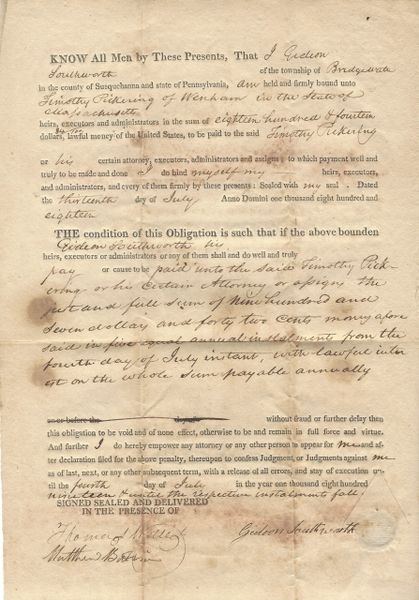 KNOW All Men by These Presents, That I Gideon
Southworth of the township of Bridgewater
in the county of Susquehanna and state of Pennsylvania, am held and firmly bound unto
Timothy Pickering of Wenham in the State of
Massachusetts
heirs, executors and administrators in the sum of eighteen hundred & fourteen
dollars, lawful money of the United States, to be paid to the said Timothy Pickering
or his certain attorney, executors, administrators and assigns; to which payment well and
truly to be made and done I do bind myself my heirs, executors,
and administrators, and every of them firmly by these presents: Sealed with my seal. Dated
the thirteenth day of July Anno Domini one thousand eight hundred and
eighteen
THE condition of this Obligation is such that if the above bounden
Gideon Southworth his
heirs, executors or administrators or any of them shall and do well and truly
pay or cause to be paid unto the said Timothy Pick-
ering or his Certain Attorney or assigns the
just and full Sum of Nine hundred and
Seven dollars and forty two Cents money afore
said in five equal annual instalments from the
fourth day of July instant, with lawful inter
est on the whole Sum payable annually
on or before the day of without fraud or further delay then
this obligation to be void and of none effect, otherwise to be and remain in full force and virtue.
And further I do hereby empower any attorney or any other person to appear for me and af-
ter declaration filed for the above penalty, thereupon to confess Judgment or Judgments against me
as of last, next, or any other subsequent term, with a release of all errors, and stay of execution un-
til the fourth day of July in the year one thousand eight hundred
nineteen & until the respective instalments fall
SIGNED SEALED AND DELIVERED
IN THE PRESENCE OF
Gideon Southworth
Thomas
Matthew